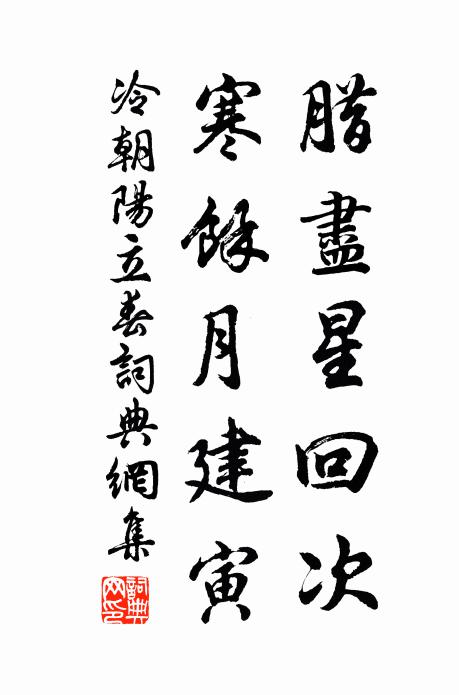 腊盡星回次
寒餘月建寅
冷朝陽立春詞典網集
詞典網印